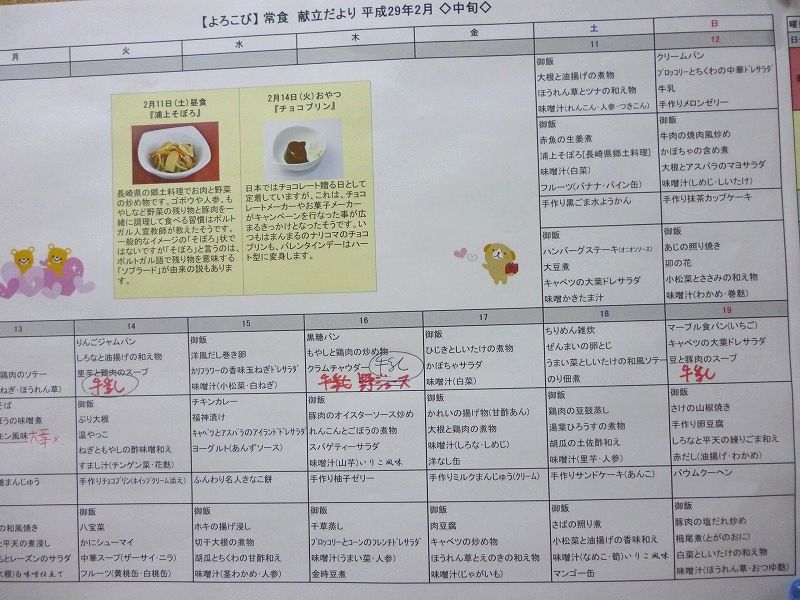 【よろこび】 常食 献立だより 平成29年2月 ◇中旬◇
月 火 水 木 金 土 日
11 12
2月11日(土)昼食
『浦上そぼろ』
長崎県の郷土料理でお肉と野菜
の炒め物です。ゴボウや人参、も
やしなど野菜の残り物と豚肉を一
緒に調理して食べる習慣はポルト
ガル人宣教師が教えたそうです。
一般的なイメージの「そぼろ」状で
はないですが「そぼろ」と言うのは、
ポルトガル語で残り物を意味する
「ソブラード」が由来の説もありま
す。
2月14日(火)おやつ
『チョコプリン』
日本ではチョコレート贈る日として
定着していますが、これは、チョコ
レートメーカーやお菓子メーカー
がキャンペーンを行なった事が広
まるきっかけとなったそうです。い
つもはまんまるのナリコマのチョコ
プリンも、バレンタインデーはハー
ト型に変身します。
御飯
大根と油揚げの煮物
ほうれん草とツナの和え物
味噌汁(れんこん・人参・つきこん)
御飯
赤魚の生姜煮
浦上そぼろ[長崎県郷土料理]
味噌汁(白菜)
フルーツ(バナナ・パイン缶)
手作り黒ごま水ようかん
御飯
ハンバーグステーキ(オニオンソース)
大豆煮
キャベツの大葉ドレサラダ
味噌かきたま汁
クリームパン
ブロッコリーとちくわの中華ドレサラダ
牛乳
手作りメロンゼリー
御飯
牛肉の焼肉風炒め
かぼちゃの含め煮
大根とアスパラのマヨサラダ
味噌汁(しめじ・しいたけ)
手作り抹茶カップケーキ
御飯
あじの照り焼き
卯の花
小松菜とささみの和え物
味噌汁(わかめ・巻麩)
13 14 15 16 17 18 19
鶏肉のソテー
ねぎ・ほうれん草)
そば
ぼうの味噌煮
モン風味
まんじゅう
の和風焼き
と平天の煮浸し
とレーズンのサラダ
大根)白味噌仕立て
りんごジャムパン
しろなと油揚げの和え物
里芋と鶏肉のスープ
牛乳
御飯
ぶり大根
温やっこ
ねぎともやしの酢味噌和え
すまし汁(チンゲン菜・花麩)
手作りチョコプリン(ホイップクリーム添え)
御飯
八宝菜
かにシューマイ
中華スープ(ザーサイ・ニラ)
フルーツ(黄桃缶・白桃缶)
御飯
洋風だし巻き卵
カリフラワーの香味玉ねぎドレサラダ
味噌汁(小松菜・白ねぎ)
チキンカレー
福神漬け
キャベツとアスパラのアイランドドレサラダ
ヨーグルト(あんずソース)
ふんわり名人きなこ餅
御飯
ホキの揚げ浸し
切干大根の煮物
胡瓜とちくわの甘酢和え
味噌汁(茎わかめ・人参)
黒糖パン
もやしと鶏肉の炒め物
クラムチャウダー
牛乳
牛乳 野ジュース
御飯
豚肉のオイスターソース炒め
れんこんとごぼうの煮物
スパゲティーサラダ
味噌汁(山芋)いりこ風味
手作り柚子ゼリー
御飯
千草蒸し
ブロッコリーとコーンのフレンチドレサラダ
味噌汁(うまい菜・人参)
金時豆煮
御飯
ひじきとしいたけの煮物
かぼちゃサラダ
味噌汁(白菜)
御飯
かれいの揚げ物(甘酢あん)
大根と鶏肉の煮物
味噌汁(しろな・しめじ)
洋なし缶
手作りミルクまんじゅう(クリーム)
御飯
肉豆腐
キャベツの炒め物
ほうれん草とえのきの和え物
味噌汁(じゃがいも)
ちりめん雑炊
ぜんまいの卵とじ
うまい菜としいたけの和風ソテー
のり佃煮
御飯
鶏肉の豆鼓蒸し
湯葉ひろうすの煮物
胡瓜の土佐酢和え
味噌汁(里芋・人参)
手作りサンドケーキ(あんこ)
御飯
さばの照り煮
小松菜と油揚げの香味和え
味噌汁(なめこ・筍)いりこ風味
マンゴー缶
マーブル食パン(いちご)
キャベツの大葉ドレサラダ
豆と豚肉のスープ
牛乳
御飯
さけの山椒焼き
手作り卵豆腐
しろなと平天の練りごま和え
赤だし(油揚げ・わかめ)
バウムクーヘン
御飯
豚肉の塩だれ炒め
栂尾煮(とがのおに)
白菜としいたけの和え物
味噌汁(ほうれん草・おつゆ麩)